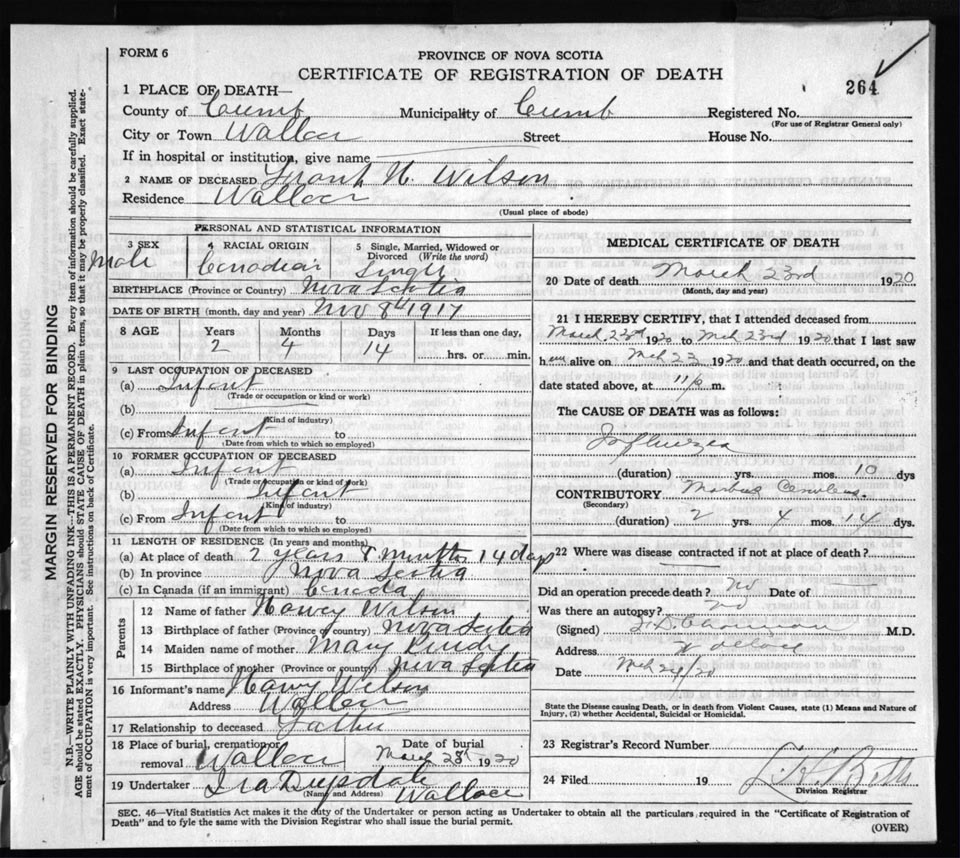 FORM 6
PROVINCE OF NOVA SCOTIA
CERTIFICATE OF REGISTRATION OF DEATH
264
1 PLACE OF DEATH—
County of Cumb Municipality of Cumb Registered No.
(For use of Registrar General only)
City or Town Wallace Street House No.
If in hospital or institution, give name
2 NAME OF DECEASED Frank H. Wilson
Residence Wallace
(Usual place of abode)
PERSONAL AND STATISTICAL INFORMATION
3 SEX Male
4 RACIAL ORIGIN Canadian
5 Single, Married, Widowed or Divorced (Write the word) Single
BIRTHPLACE (Province or Country) Nova Scotia
DATE OF BIRTH (month, day and year) Nov 8th 1917
8 AGE Years Months Days If less than one day,
2 4 14 hrs. or min.
9 LAST OCCUPATION OF DECEASED
(a) Infant
(Trade or occupation or kind or work)
(b)
(Kind of industry)
(c) From Infant to
(Date from which to which so employed)
10 FORMER OCCUPATION OF DECEASED
(a) Infant
(Trade or occupation or kind of work)
(b) Infant
(Kind of industry)
(c) From Infant to
(Date from which to which so employed)
11 LENGTH OF RESIDENCE (In years and months)
(a) At place of death 2 years 4 months 14 days
(b) In province Nova Scotia
(c) In Canada (if an immigrant) Canada
Parents
12 Name of father Harvey Wilson
13 Birthplace of father (Province or country) Nova Scotia
14 Maiden name of mother Mary
15 Birthplace of mother (Province or country) Nova Scotia
16 Informant's name Harvey Wilson
Address Wallace
17 Relationship to deceased Father
18 Place of burial, cremation or removal Wallace
Date of burial March 25th 1920
19 Undertaker Ira
(Name and Address) Wallace
MEDICAL CERTIFICATE OF DEATH
20 Date of death March 23rd 1920
(Month, day and year)
21 I HEREBY CERTIFY, that I attended deceased from
March 23rd 1920 to Mch 23rd 1920 that I last saw
him alive on Mch 23 1920 and that death occurred, on the
date stated above, at 11 p m.
The CAUSE OF DEATH was as follows:
Influenza
(duration) yrs. mos. 10 dys
CONTRIBUTORY Morbus Ceruleus.
(Secondary)
(duration) 2 yrs. 4 mos. 14 dys.
22 Where was disease contracted if not at place of death?
Did an operation precede death? no Date of
Was there an autopsy? no
(Signed) M.D.
Address Wallace
Date Mch 24/20
State the Disease causing Death, or in death from Violent Causes, state (1) Means and Nature of
Injury, (2) whether Accidental, Suicidal or Homicidal.
23 Registrar's Record Number
24 Filed 19 Betts
Division Registrar
SEC. 46—Vital Statistics Act makes it the duty of the Undertaker or person acting as Undertaker to obtain all the particulars required in the "Certificate of Registration of
Death" and to fyle the same with the Division Registrar who shall issue the burial permit.
(OVER)
MARGIN RESERVED FOR BINDING
N.B.—WRITE PLAINLY WITH UNFADING INK—THIS IS A PERMANENT RECORD. Every item of information should be carefully supplied.
AGE should be stated EXACTLY. PHYSICIANS should STATE CAUSE OF DEATH in plain terms, so that it may be properly classified. Exact state-
ment of OCCUPATION is very important. See instructions on back of Certificate.